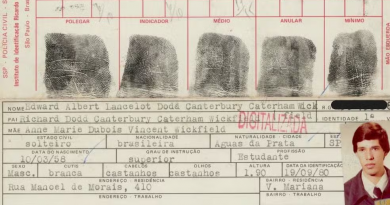 POLEGAR INDICADOR MÉDIO ANULAR MÍNIMO
SSP - POLÍCIA CIVIL - S
Instituto de Identificação Ricardo
São Paulo - Bras
MÃO DIREITA
NOME Edward Albert Lancelot Dodd Canterbury Caterham Wick
PAI Richard Dodd Canterbury Caterham Wickf IDENTIDADE 1ª
DIGITALIZADA
MÃE Anne Marie Dubois Vincent Wickfield
ESTADO CIVIL NACIONALIDADE NATURALIDADE CIDADE EST
solteiro brasileira Aguas da Prata SP
DATA DO NASCIMENTO GRAU DE INSTRUÇÃO PROFISSÃO
10/03/58 superior Estudante
SEXO CUTIS CABELOS OLHOS ALTURA DATA DA IDENTIFICAÇÃO
Masc. branca castanhos castanhos 1.90 19/09/80
ENDEREÇO - RESIDÊNCIA BAIRRO - RESIDÊNCIA
Rua Mancel de Morais, 410 V. Mariana
ENDEREÇO - TRABALHO BAIRRO - TRABALHO